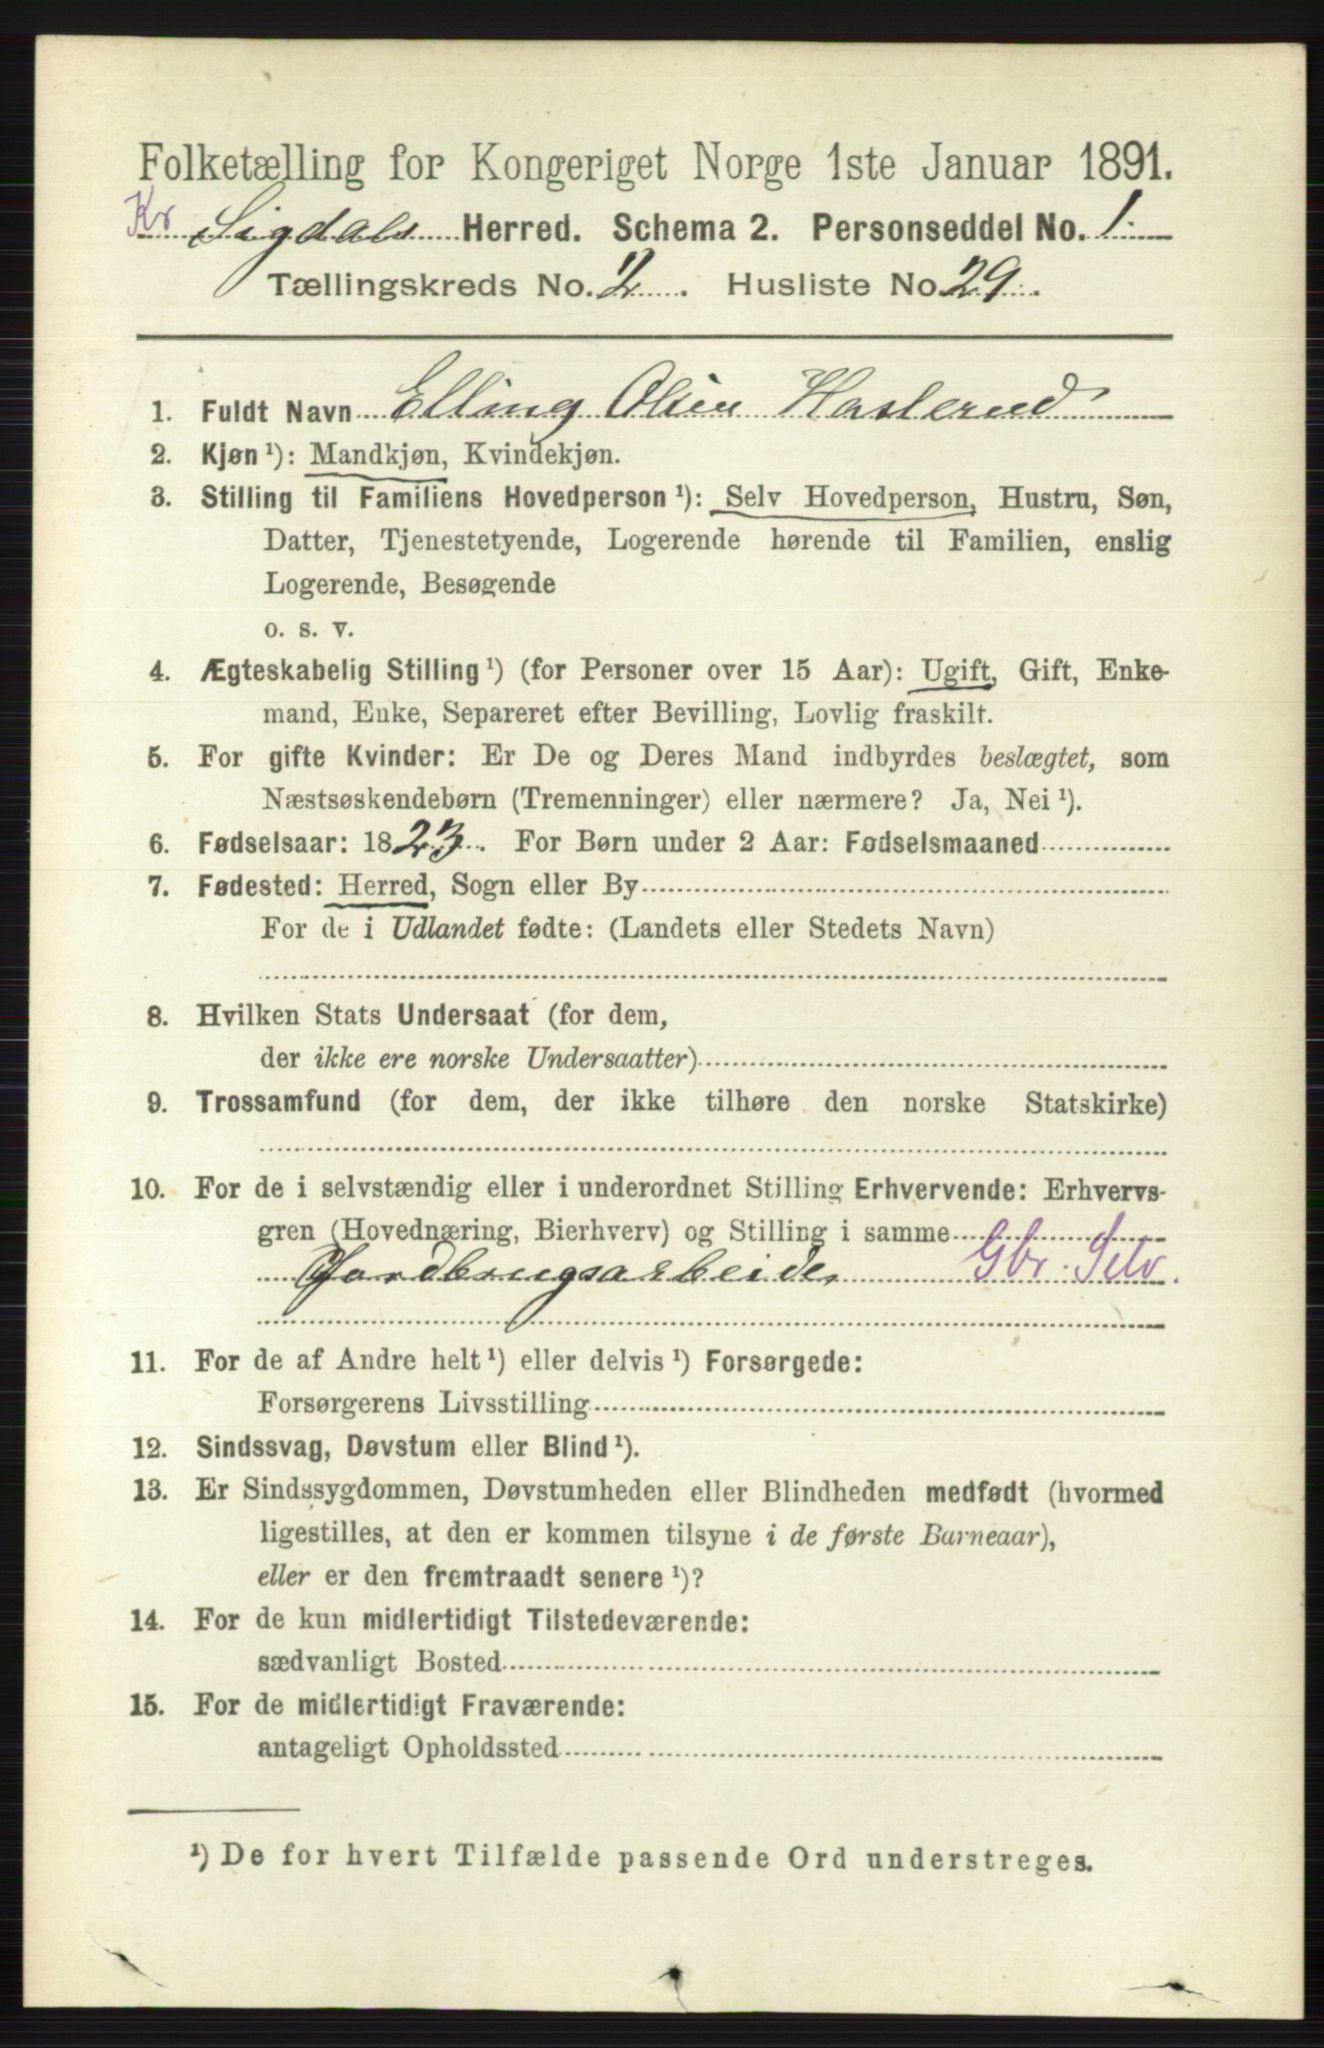 Folketælling for Kongeriget Norge 1ste Januar 1891.
Kr Sigdals Herred. Schema 2. Personseddel No. 1
Tællingskreds No. 2. Husliste No. 29.
1. Fuldt Navn Elling Olsen Haslerud
2. Kjøn ¹): Mandkjøn, Kvindekjøn.
3. Stilling til Familiens Hovedperson ¹): Selv Hovedperson, Hustru, Søn,
Datter, Tjenestetyende, Logerende hørende til Familien, enslig
Logerende, Besøgende
o. s. v.
4. Ægteskabelig Stilling ¹) (for Personer over 15 Aar): Ugift, Gift, Enke-
mand, Enke, Separeret efter Bevilling, Lovlig fraskilt.
5. For gifte Kvinder: Er De og Deres Mand indbyrdes beslægtet, som
Næstsøskendebørn (Tremenninger) eller nærmere? Ja, Nei ¹).
6. Fødselsaar: 1823. For Børn under 2 Aar: Fødselsmaaned
7. Fødested: Herred, Sogn eller By
For de i Udlandet fødte: (Landets eller Stedets Navn)
8. Hvilken Stats Undersaat (for dem,
der ikke ere norske Undersaatter)
9. Trossamfund (for dem, der ikke tilhøre den norske Statskirke)
10. For de i selvstændig eller i underordnet Stilling Erhvervende: Erhvervs-
gren (Hovednæring, Bierhverv) og Stilling i samme
Jordbrugsarbeider Gbr. Selv.
11. For de af Andre helt ¹) eller delvis ¹) Forsørgede:
Forsørgerens Livsstilling
12. Sindssvag, Døvstum eller Blind ¹).
13. Er Sindssygdommen, Døvstumheden eller Blindheden medfødt (hvormed
ligestilles, at den er kommen tilsyne i de første Barneaar),
eller er den fremtraadt senere ¹)?
14. For de kun midlertidigt Tilstedeværende:
sædvanligt Bosted
15. For de midlertidigt Fraværende:
antageligt Opholdssted
¹) De for hvert Tilfælde passende Ord understreges.